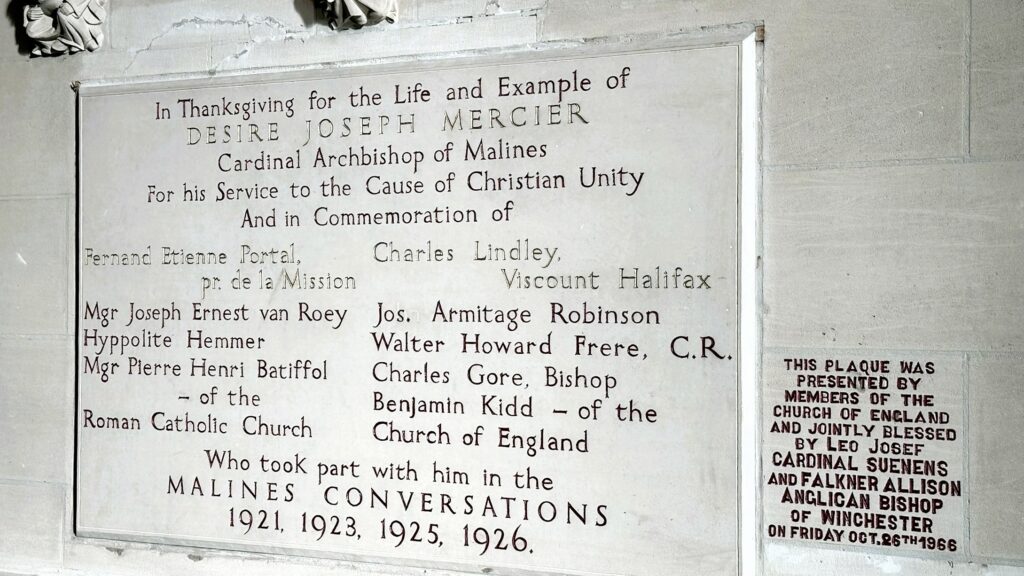 In Thanksgiving for the Life and Example of
DESIRE JOSEPH MERCIER
Cardinal Archbishop of Malines
For his Service to the Cause of Christian Unity
And in Commemoration of
Fernand Etienne Portal,
pr. de la Mission
Mgr Joseph Ernest van Roey
Hyppolite Hemmer
Mgr Pierre Henri Batiffol
– of the
Roman Catholic Church
Charles Lindley,
Viscount Halifax
Jos. Armitage Robinson
Walter Howard Frere, C.R.
Charles Gore, Bishop
Benjamin Kidd – of the
Church of England
Who took part with him in the
MALINES CONVERSATIONS
1921, 1923, 1925, 1926.
THIS PLAQUE WAS
PRESENTED BY
MEMBERS OF THE
CHURCH OF ENGLAND
AND JOINTLY BLESSED
BY LEO JOSEF
CARDINAL SUENENS
AND FALKNER ALLISON
ANGLICAN BISHOP
OF WINCHESTER
ON FRIDAY OCT. 26TH 1966